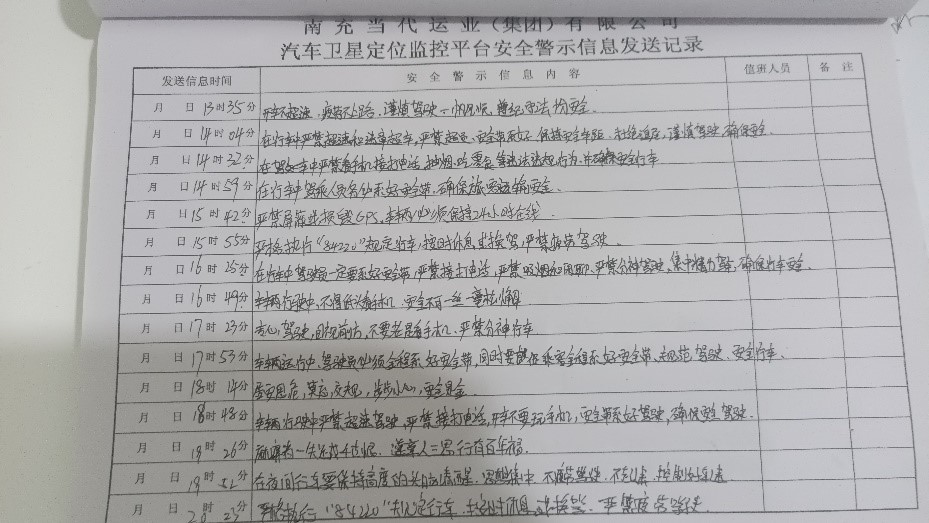 南充当代运业(集团)有限公司
汽车卫星定位监控平台安全警示信息发送记录
发送信息时间 安全警示信息内容 值班人员 备注
月 日 13时35分 开车不超速,疲劳不上路,谨慎驾驶一帆风顺,遵纪守法为安全.
月 日 14时04分 在行车中严禁超速和违章超车,严禁超员,安全带系好,保持安全车距,谨慎驾驶,确保安全.
月 日 14时32分 在驾驶车中严禁看手机接打电话,抽烟,吃零食等违法违规行为,并确保安全行车
月 日 14时59分 在行车中驾乘人员务必系好安全带,确保旅客运输安全.
月 日 15时42分 严禁屏蔽或损毁GPS,车辆必须保持24小时在线.
月 日 15时55分 严格执行"84220"规定行车,按时休息或换驾,严禁疲劳驾驶.
月 日 16时25分 在行车中驾驶员一定要系好安全带,严禁接打电话,严禁吸烟,严禁分神驾驶,集中精力驾驶,确保行车安全.
月 日 16时49分 车辆行驶中,不得低头看手机,安全不可一丝
月 日 17时23分 专心驾驶,目视前方,不要老是看手机,严禁分神行车
月 日 17时53分 车辆运行中,驾驶员必须全程系好安全带,同时要督促乘客全程系好安全带、规范驾驶、安全行车.
月 日 18时14分 居安思危,莫忘交规,步步小心,安全是金.
月 日 18时48分 车辆行驶中严禁超速驾驶,严禁接打电话,开车不要玩手机,安全带系好驾驶,确保安全驾驶.
月 日 19时26分 麻痹有一失,遵章人三思行有百年福.
月 日 19时52分 在夜间行车要保持高度的头脑清醒,思想集中,不疲劳驾驶,不超速,控制好车速
月 日 20时23分 严格执行"84220"规定行车,按时休息或换驾,严禁疲劳驾驶